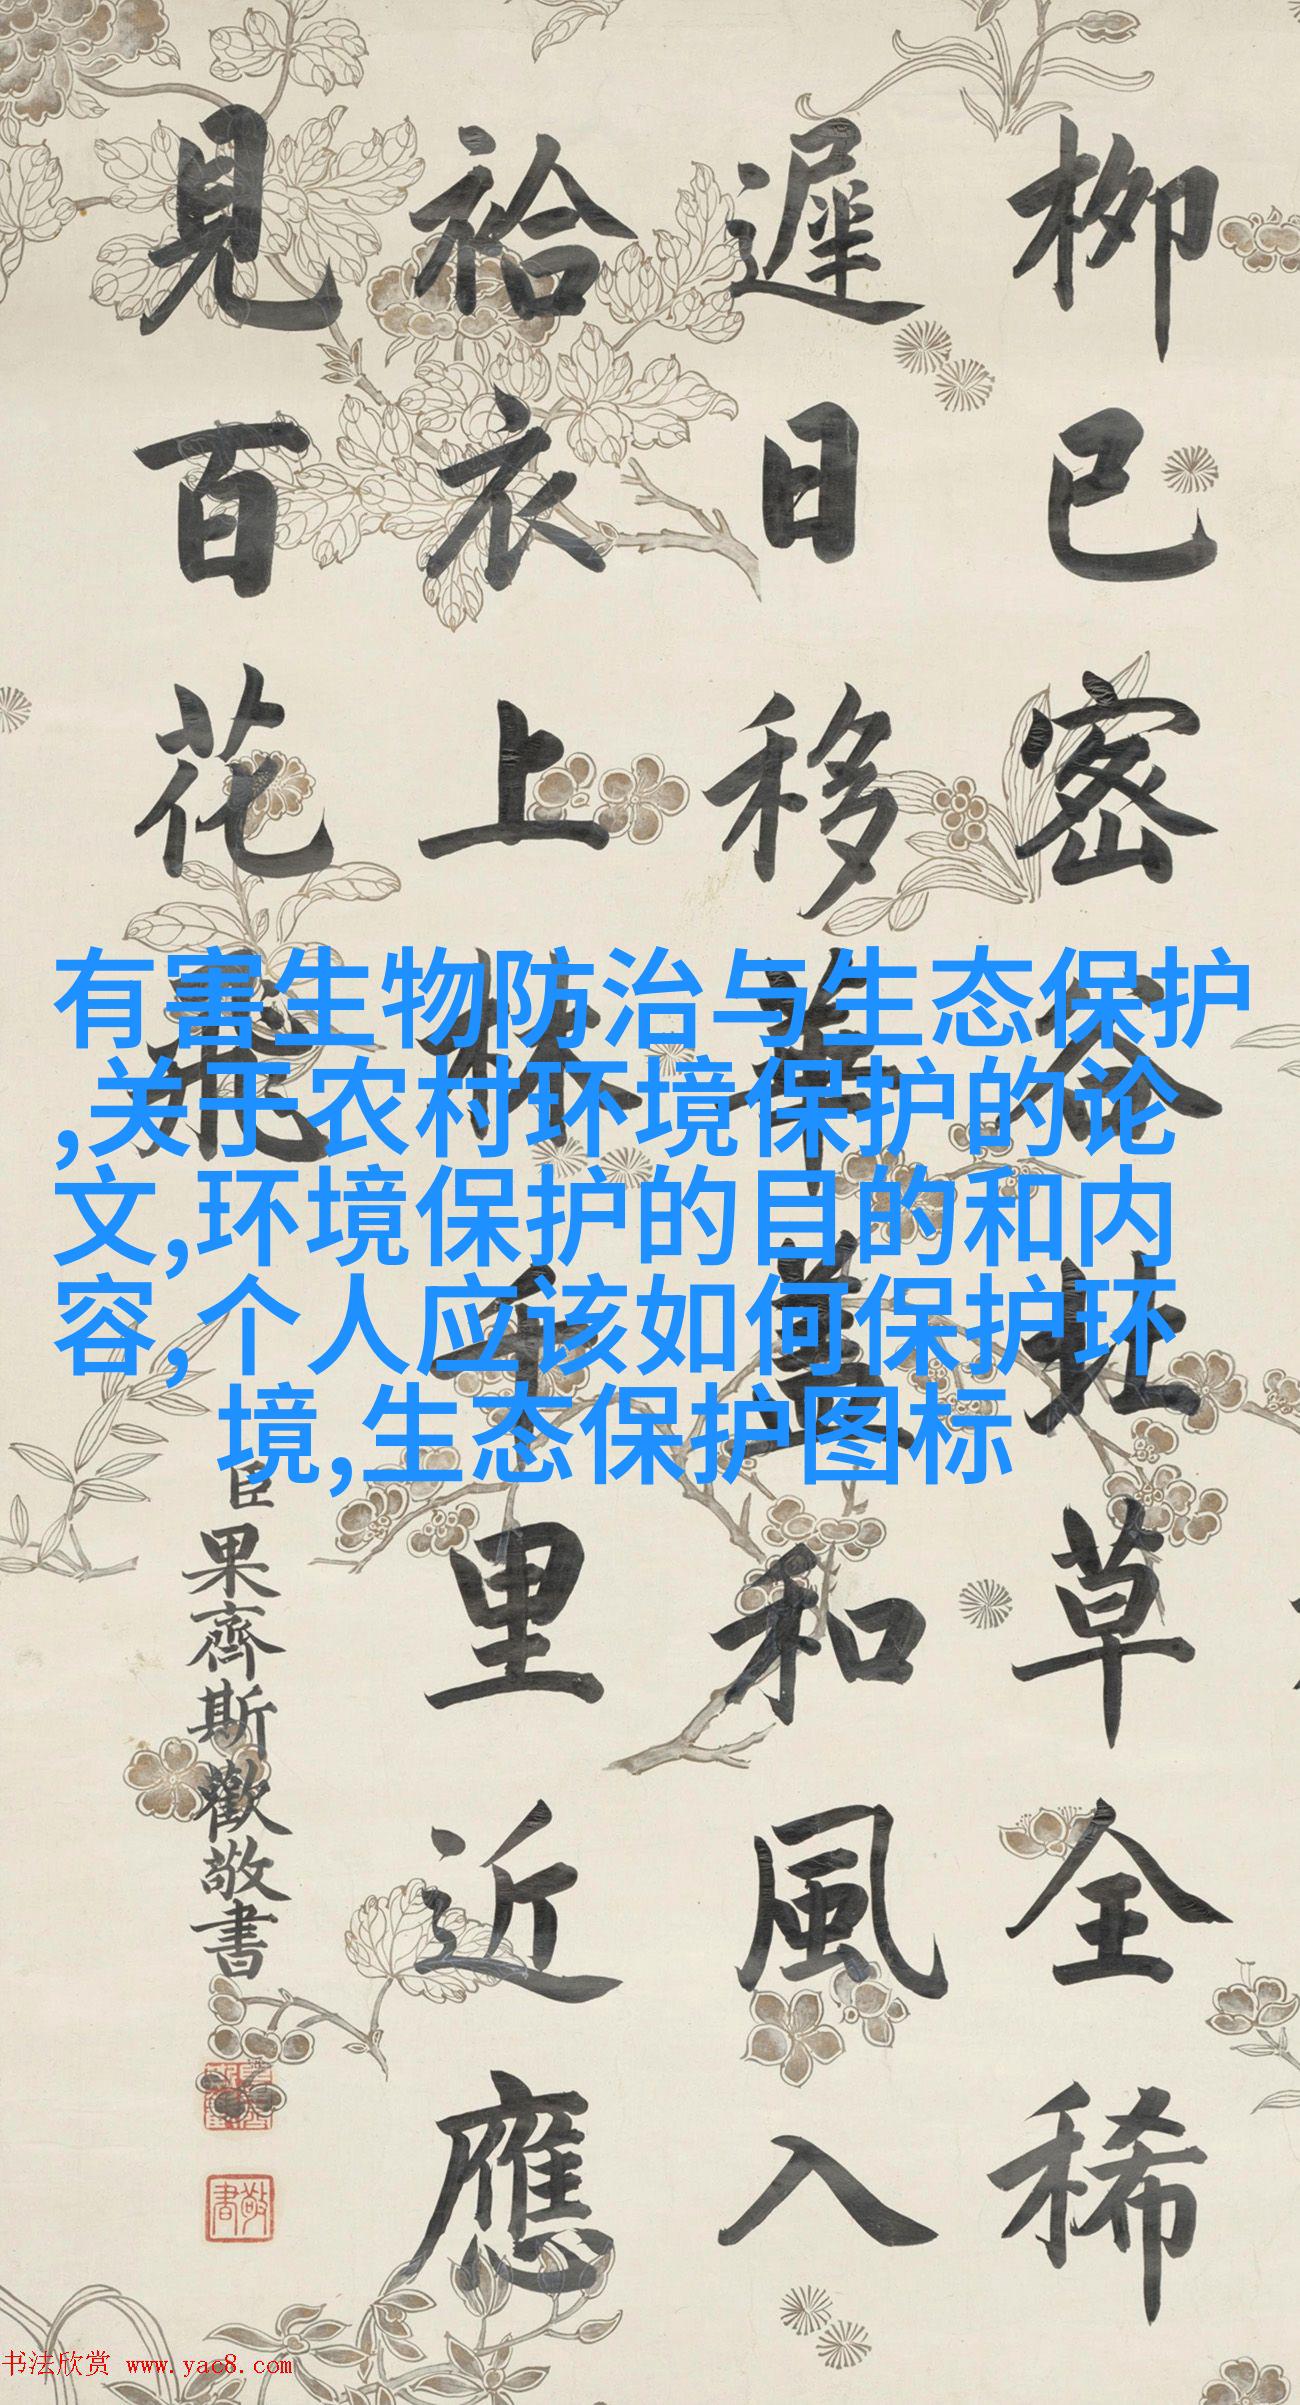 柳已密谷北草全稀
遲日移華蓋和風入
袷衣上林千里近應
見百花飛
臣果齊斯歡敬書
敬書
有害生物防治与生态保护
,关于农村环境保护的论
文,环境保护的目的和内
容,个人应该如何保护环
境,生态保护图标
书法欣赏 www.yac8.com